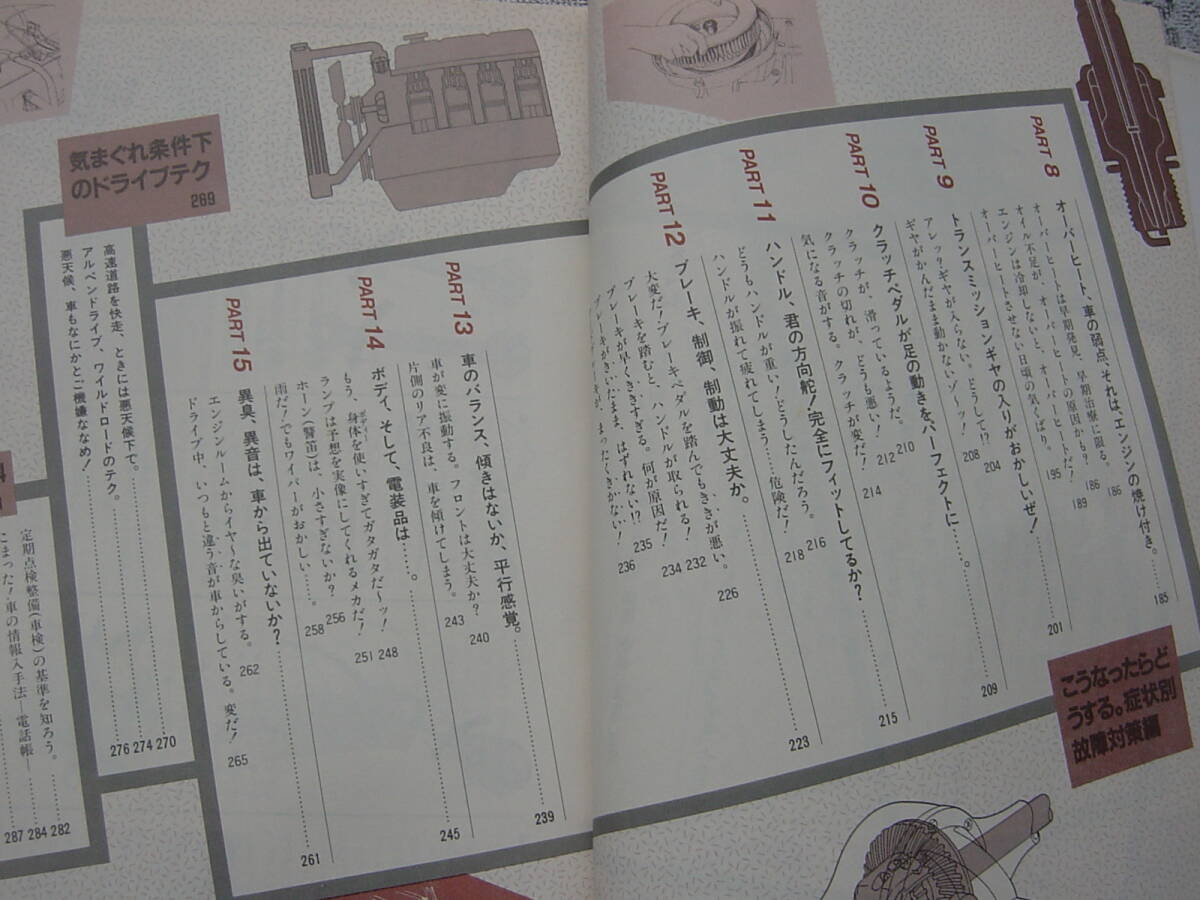 こうなったらど
うする。症状別
故障対策編
PART 8
オーバーヒート、車の弱点、それは、エンジンの焼け付き。……185
オーバーヒートは早期発見、早期治療に限る。 186
オイル不足が、オーバーヒートの原因かも? 186
エンジンは冷却しないと、オーバーヒートだ! 189
オーバーヒートさせない日頃の気くばり。 195
PART 9
トランスミッションギヤの入りがおかしいぜ!……201
アレッ?ギヤが入らない。どうして!? 204
ギヤがかんだまま動かないゾ〜ッ! 208
PART 10
クラッチペダルが足の動きをパーフェクトに…。……209
クラッチが、滑っているようだ。 210
クラッチの切れが、どうも悪い! 212
気になる音がする。クラッチが変だ! 214
PART 11
ハンドル、君の方向舵!完全にフィットしてるか?……215
どうもハンドルが重い!どうしたんだろう。 216
ハンドルが振れて疲れてしまう……危険だ! 218
PART 12
ブレーキ、制御、制動は大丈夫か。……223
大変だ!ブレーキペダルを踏んでもききが悪い。 226
ブレーキを踏むと、ハンドルが取られる! 232
ブレーキが早くききすぎる。何が原因だ! 234
ブレーキがきいたまま、はずれない!? 235
ブレーキが、まったくきかない! 236
PART 13
車のバランス、傾きはないか、平行感覚。……239
車が変に振動する。フロントは大丈夫か? 240
片側のリア不良は、車を傾けてしまう。 243
PART 14
ボディ、そして、電装品は…。……245
もう、身体を使いすぎてガタガタだ〜ッ! 248
ランプは予想を実像にしてくれるメカだ! 251
ホーン(警笛)は、小さすぎないか? 256
雨だ?でもワイパーがおかしい……。 258
PART 15
異臭、異音は、車から出ていないか?……261
エンジンルームからイヤ〜な臭いがする。 262
ドライブ中、いつもと違う音が車からしている。変だ! 265
気まぐれ条件下
のドライブテク
269
高速道路を快走、ときには悪天候下で。……270
アルペンドライブ、ワイルドロードのテク。……274
悪天候、車もなにかとご機嫌ななめ!……276
定期点検整備(車検)の基準を知ろう。……282
こまった!車の情報入手法—電話帳—……284
287